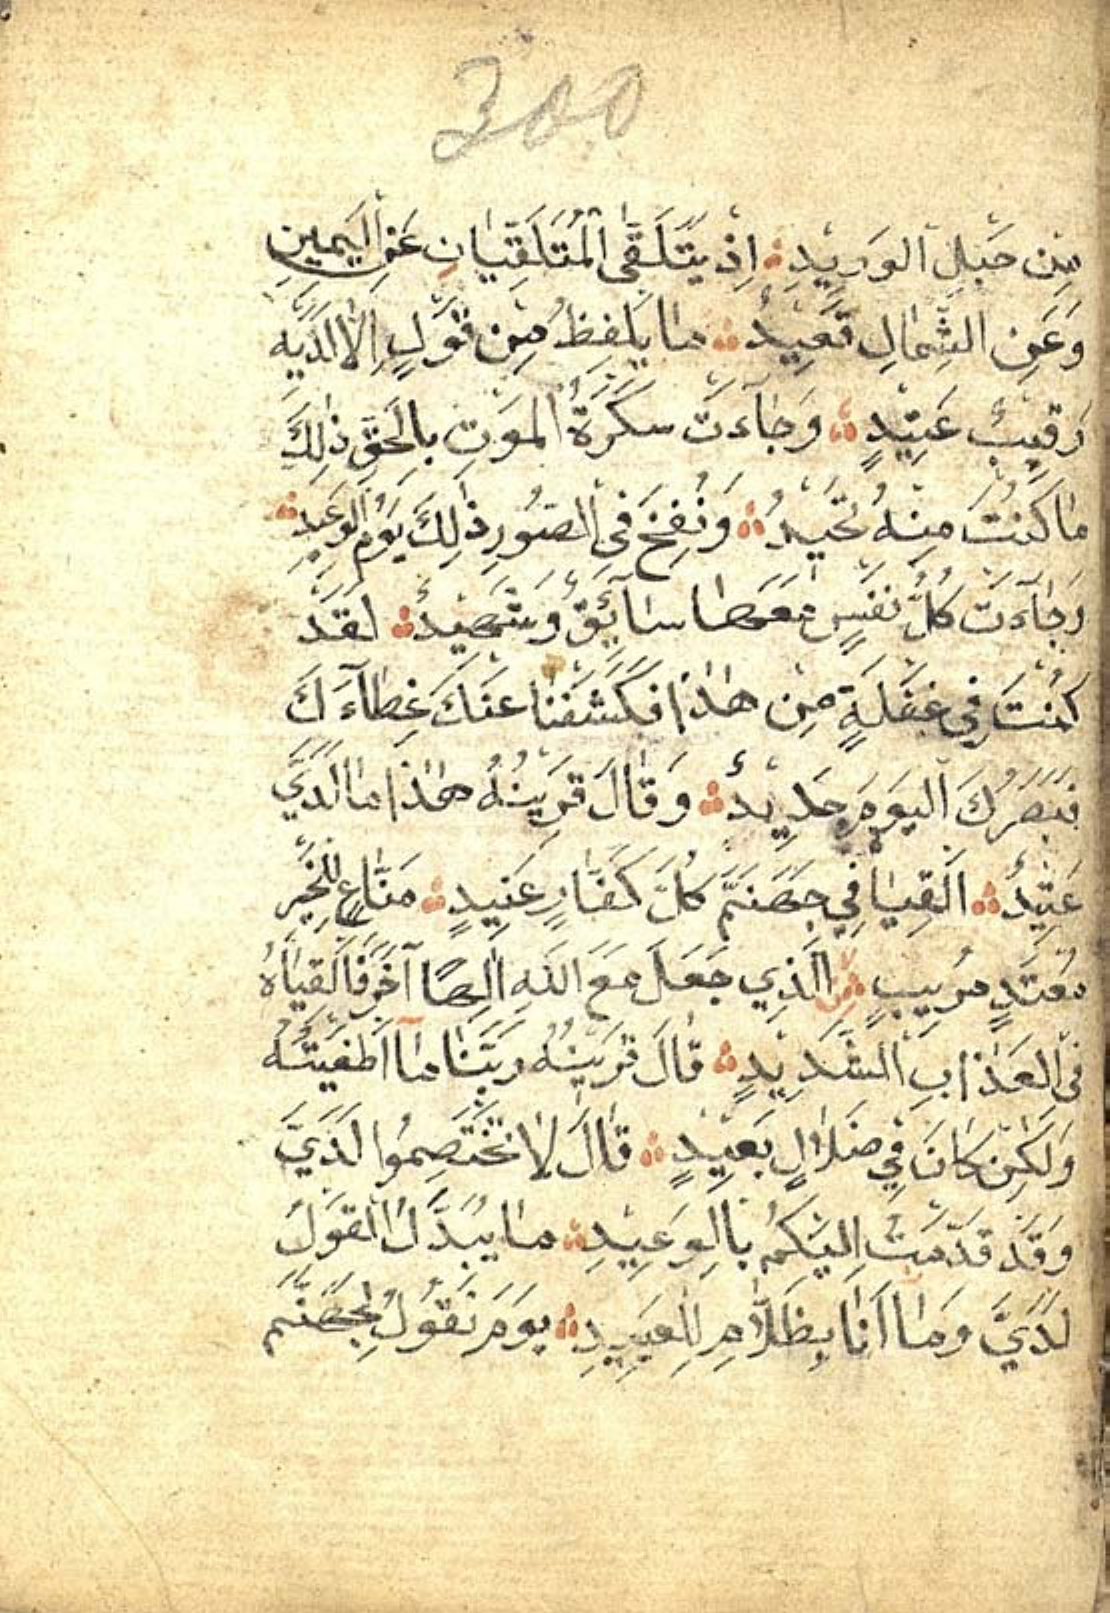 300
مِن حَبلِ الوَرِيدِ اِذ يَتَلَقَّى المُتَلَقِّيَانِ عَنِ اليَمِينِ
وَعَنِ الشِّمَالِ قَعِيدٌ مَا يَلفِظُ مِن قَولٍ اِلَّا لَدَيهِ
رَقِيبٌ عَتِيدٍ وَجَاءَت سَكرَةُ المَوتِ بِالحَقِّ ذٰلِكَ
مَا كُنتَ مِنهُ تَحِيدُ وَنُفِخَ فِى الصُّورِ ذٰلِكَ يَومُ الوَعِيدِ
وَجَاءَت كُلُّ نَفسٍ مَعَهَا سَآئِقٌ وَشَهِيدٌ لَقَد
كُنتَ فِي غَفلَةٍ مِن هٰذَا فَكَشَفنَا عَنكَ غِطَآءَكَ
فَبَصَرُكَ اليَومَ حَدِيدٌ وَقَالَ قَرِينُهُ هٰذَا مَا لَدَيَّ
عَتِيدٌ اَلقِيَا فِي جَهَنَّمَ كُلَّ كَفَّارٍ عَنِيدٍ مَنَّاعٍ لِلخَيرِ
مُعتَدٍ مُرِيبٍ الَّذِي جَعَلَ مَعَ اللّٰهِ اِلٰهًا آخَرَ فَاَلقِيَاهُ
فِى العَذَابِ الشَّدِيدِ قَالَ قَرِينُهُ رَبَّنَا مَا اَطغَيتُهُ
وَلٰكِن كَانَ فِي ضَلَالٍ بَعِيدٍ قَالَ لَا تَختَصِمُوا لَدَيَّ
وَقَد قَدَّمتُ اِلَيكُم بِالوَعِيدِ مَا يُبَدَّلُ القَولُ
لَدَيَّ وَمَا اَنَا بِظَلَّامٍ لِلعَبِيدِ يَومَ نَقُولُ لِجَهَنَّمَ